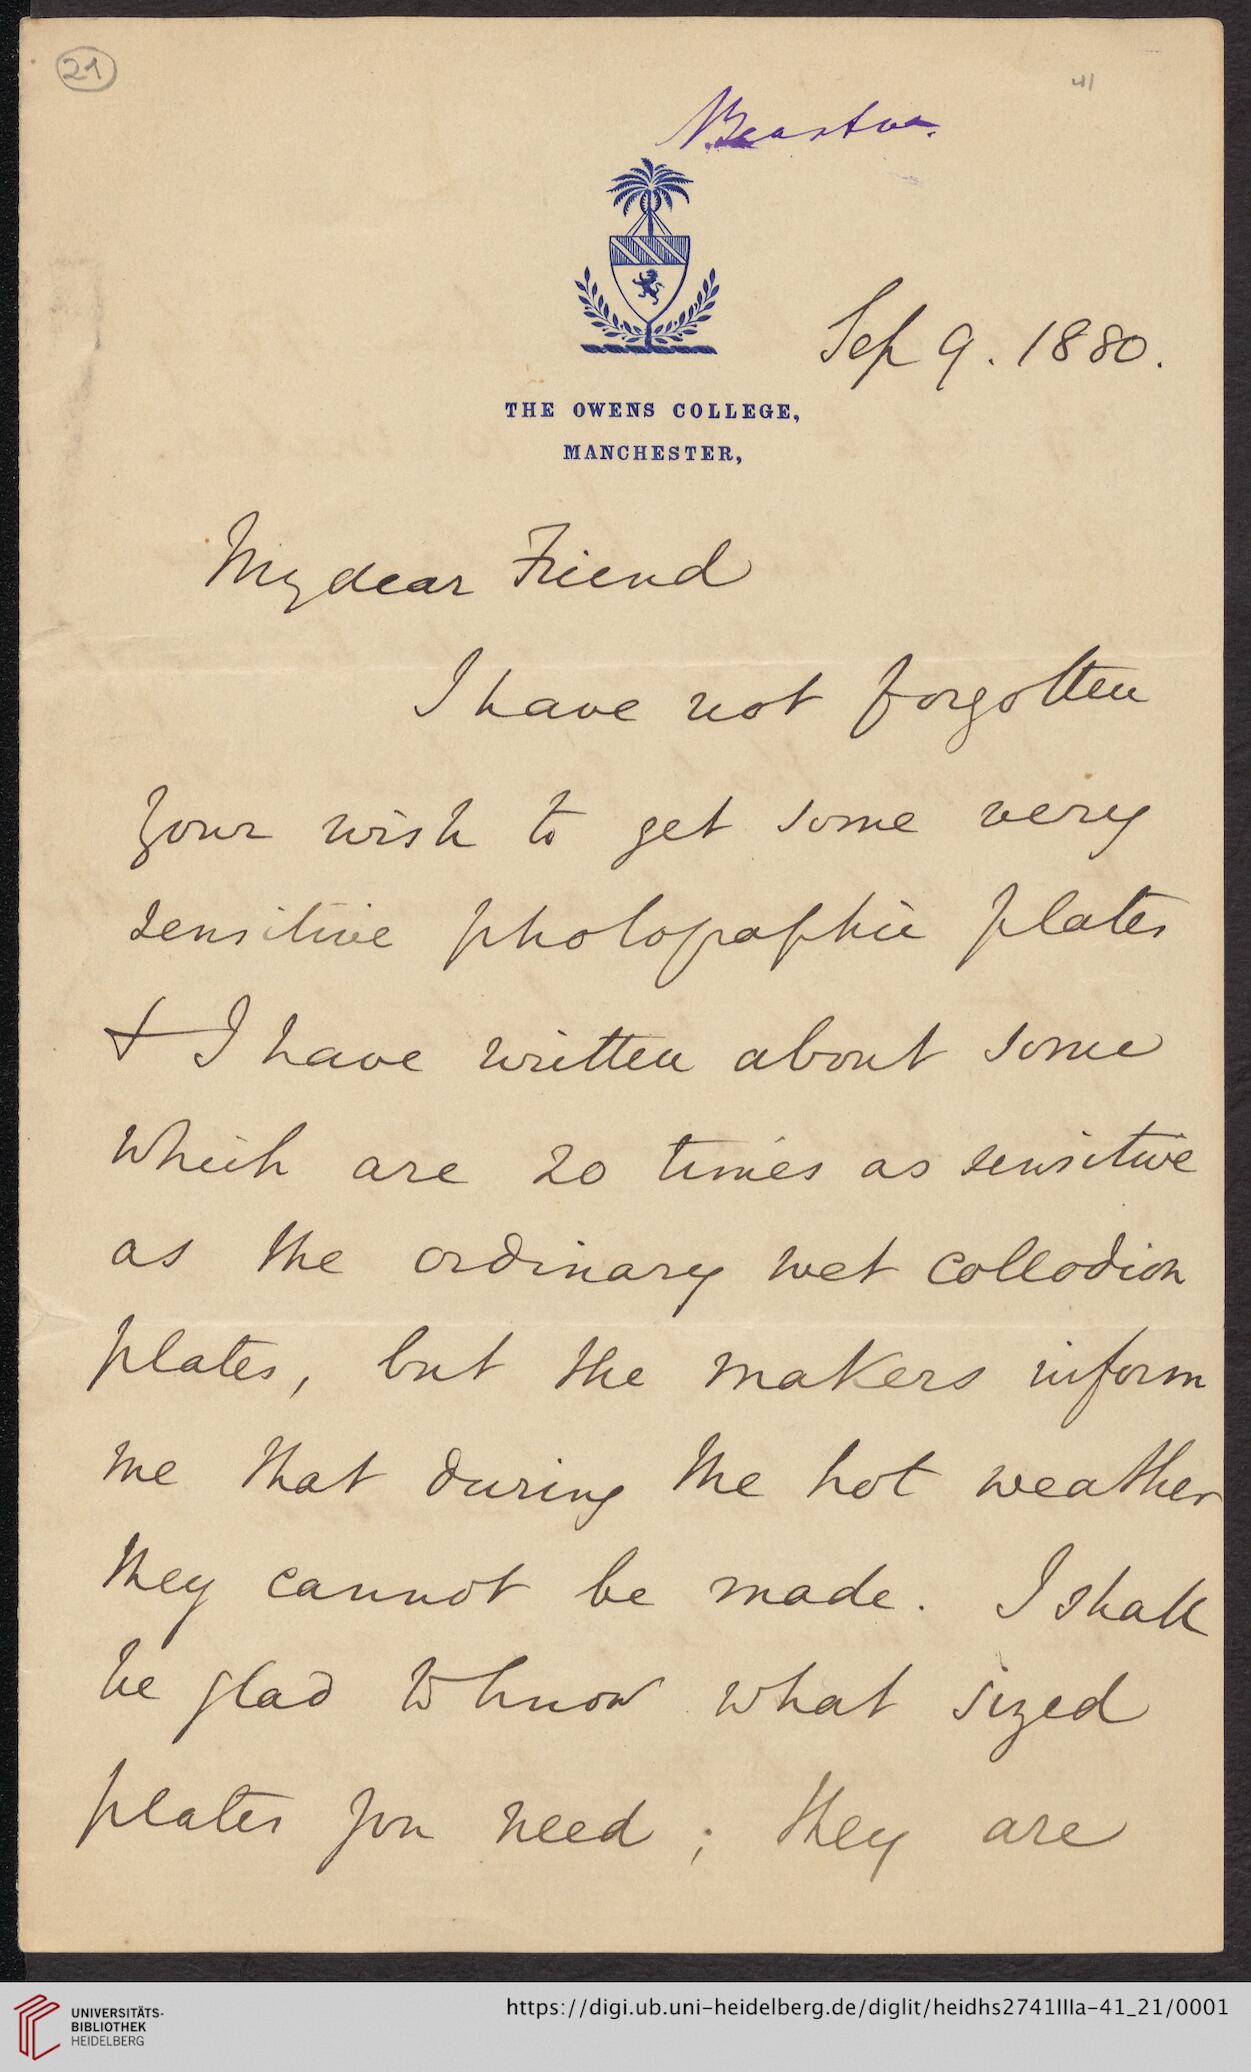 21
41
Sep 9. 1880.
THE OWENS COLLEGE,
MANCHESTER,
My dear Friend
I have not forgotten
your wish to get some very
sensitive photographic plates
& I have written about some
which are 20 times as sensitive
as the ordinary wet collodion
plates, but the makers inform
me that during the hot weather
they cannot be made. I shall
be glad to know what sized
plates you need ; they are
UNIVERSITÄTS-
BIBLIOTHEK
HEIDELBERG
https://digi.ub.uni-heidelberg.de/diglit/heidhs2741IIIa-41_21/0001